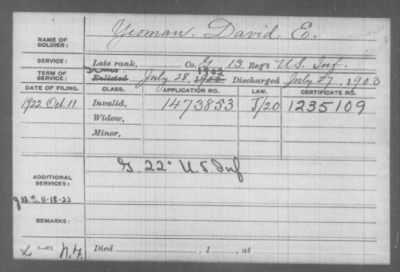 NAME OF SOLDIER: Yeoman, David E.
SERVICE: Late rank, Co. G 13 Reg't U.S. Inf.
TERM OF SERVICE: Enlisted July 28, 1900 1902 Discharged July 27, 1903
DATE OF FILING. CLASS. APPLICATION NO. LAW. CERTIFICATE NO.
1922 Oct. 11 Invalid, 1473853 J/20 1235109
Widow,
Minor,
ADDITIONAL SERVICES: G 22" U.S. Inf
11-18-22
REMARKS:
N.Y. Died , 1 , at